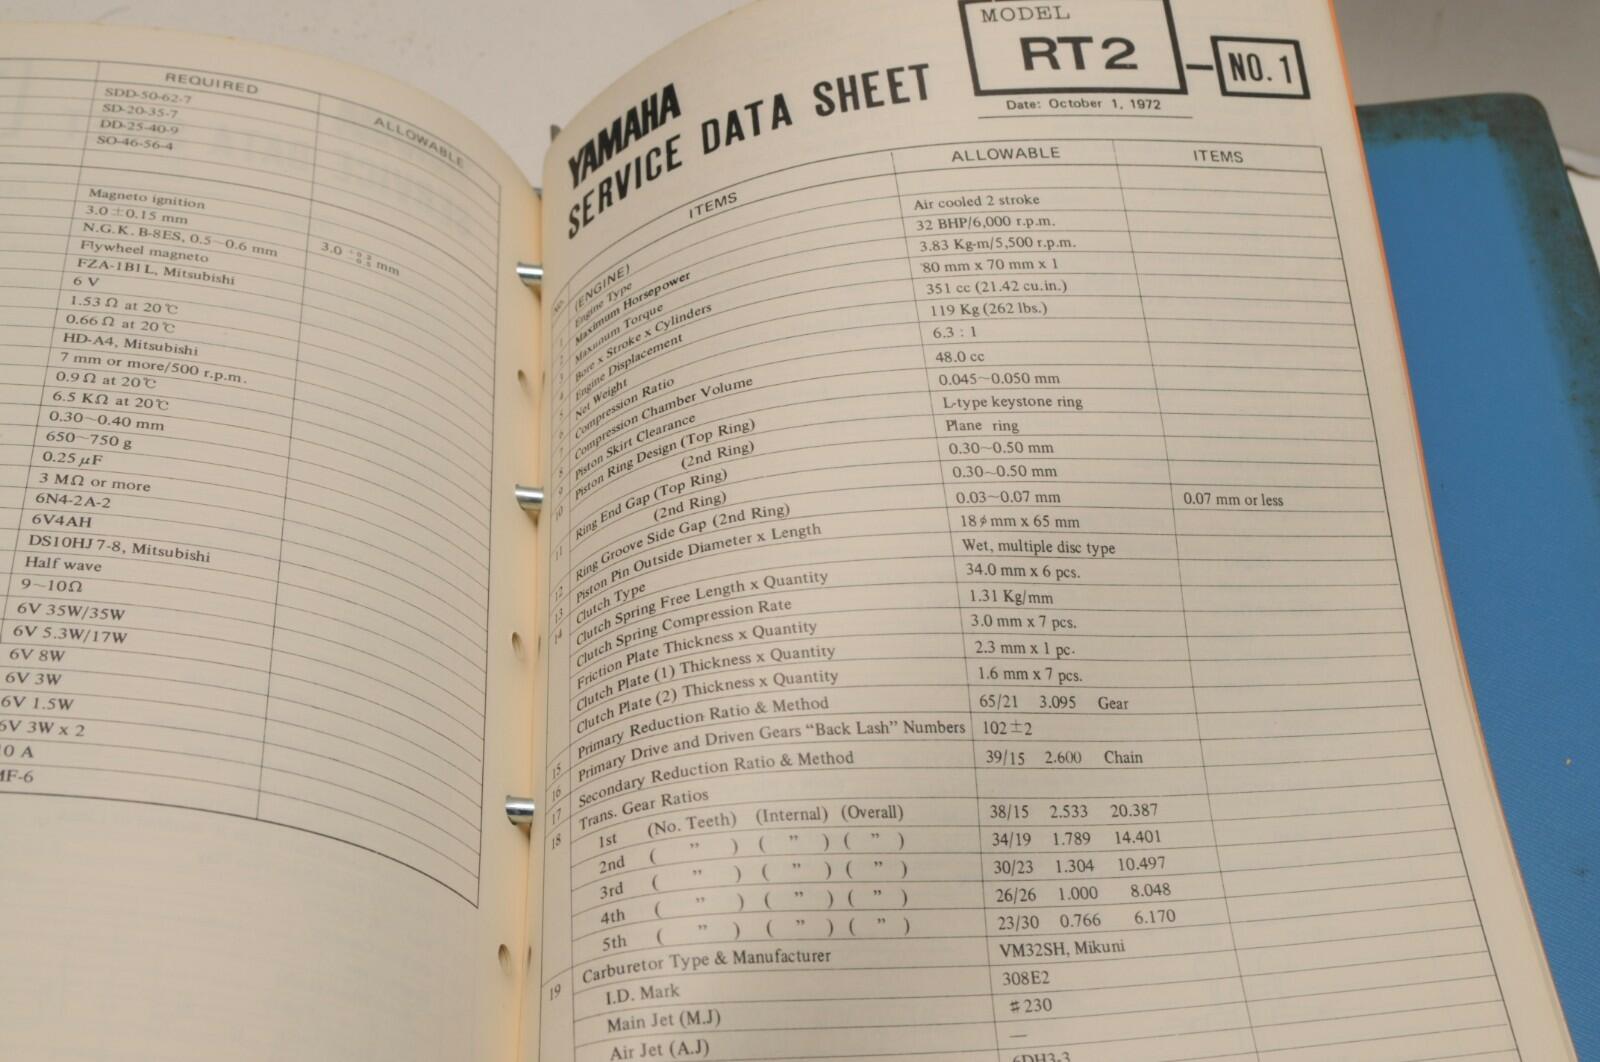 REQUIRED ALLOWABLE
SDD-50-62-7
SD-20-35-7
DD-25-40-9
SO-46-56-4
Magneto ignition
3.0±0.15 mm
N.G.K. B-8ES, 0.5~0.6 mm 3.0 mm
Flywheel magneto
FZA-1B1L, Mitsubishi
6 V
1.53 Ω at 20℃
0.66 Ω at 20℃
HD-A4, Mitsubishi
7 mm or more/500 r.p.m.
0.9 Ω at 20℃
6.5 KΩ at 20℃
0.30~0.40 mm
650~750 g
0.25 μF
3 MΩ or more
6N4-2A-2
6V4AH
DS10HJ7-8, Mitsubishi
Half wave
9~10Ω
6V 35W/35W
6V 5.3W/17W
6V 8W
6V 3W
6V 1.5W
6V 3W x 2
0 A
MF-6
YAMAHA
SERVICE DATA SHEET
MODEL
RT2 - NO. 1
Date: October 1, 1972
ITEMS ALLOWABLE ITEMS
(ENGINE)
1 Engine Type Air cooled 2 stroke
2 Maximum Horsepower 32 BHP/6,000 r.p.m.
Maximum Torque 3.83 Kg-m/5,500 r.p.m.
3 Bore x Stroke x Cylinders 80 mm x 70 mm x 1
4 Engine Displacement 351 cc (21.42 cu.in.)
5 Net Weight 119 Kg (262 lbs.)
6 Compression Ratio 6.3 : 1
7 Compression Chamber Volume 48.0 cc
8 Piston Skirt Clearance 0.045~0.050 mm
9 Piston Ring Design (Top Ring) L-type keystone ring
(2nd Ring) Plane ring
10 Ring End Gap (Top Ring) 0.30~0.50 mm
(2nd Ring) 0.30~0.50 mm
11 Ring Groove Side Gap (2nd Ring) 0.03~0.07 mm 0.07 mm or less
12 Piston Pin Outside Diameter x Length 18φmm x 65 mm
13 Clutch Type Wet, multiple disc type
14 Clutch Spring Free Length x Quantity 34.0 mm x 6 pcs.
Clutch Spring Compression Rate 1.31 Kg/mm
Friction Plate Thickness x Quantity 3.0 mm x 7 pcs.
Clutch Plate (1) Thickness x Quantity 2.3 mm x 1 pc.
Clutch Plate (2) Thickness x Quantity 1.6 mm x 7 pcs.
15 Primary Reduction Ratio & Method 65/21 3.095 Gear
16 Primary Drive and Driven Gears "Back Lash" Numbers 102±2
17 Secondary Reduction Ratio & Method 39/15 2.600 Chain
18 Trans. Gear Ratios
1st (No. Teeth) (Internal) (Overall) 38/15 2.533 20.387
2nd ( " ) ( " ) ( " ) 34/19 1.789 14.401
3rd ( " ) ( " ) ( " ) 30/23 1.304 10.497
4th ( " ) ( " ) ( " ) 26/26 1.000 8.048
5th ( " ) ( " ) ( " ) 23/30 0.766 6.170
19 Carburetor Type & Manufacturer VM32SH, Mikuni
I.D. Mark 308E2
Main Jet (M.J) #230
Air Jet (A.J) —
6DH3-3